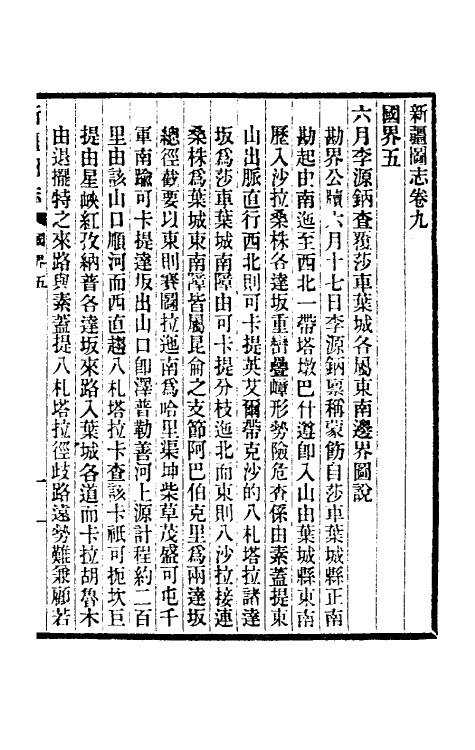 新疆圖志卷九
國界五
六月李源鈵查覆莎車葉城各屬東南邊界圖說
勘界公牘六月十七日李源鈵稟稱蒙飭自莎車葉城縣正南
勘起由南迤至西北一帶塔墩巴什遵卽入山由葉城縣東南
歷入沙拉桑株各達坂重巒疊嶂形勢險危查係由素蓋提東
山出脈直行西北則可卡提英艾爾帶克沙的八札塔拉諸達
坂爲莎車葉城南障由可卡提分枝迤北而東則八沙拉接連
桑株爲葉城東南障皆屬昆侖之支節阿巴伯克里爲兩達坂
總徑截要以東則賽圖拉迤南爲哈里渠坤柴草茂盛可屯千
軍南踰可卡提達坂出山口卽澤普勒善河上源計程約二百
里由該山口順河而西直趨八札塔拉卡查該卡祇可扼坎巨
提由星峽紅孜納普各達坂來路入葉城各道而卡拉胡魯木
由退擺特之來路與素蓋提八札塔拉徑歧路遠勢難兼顧若
國界五